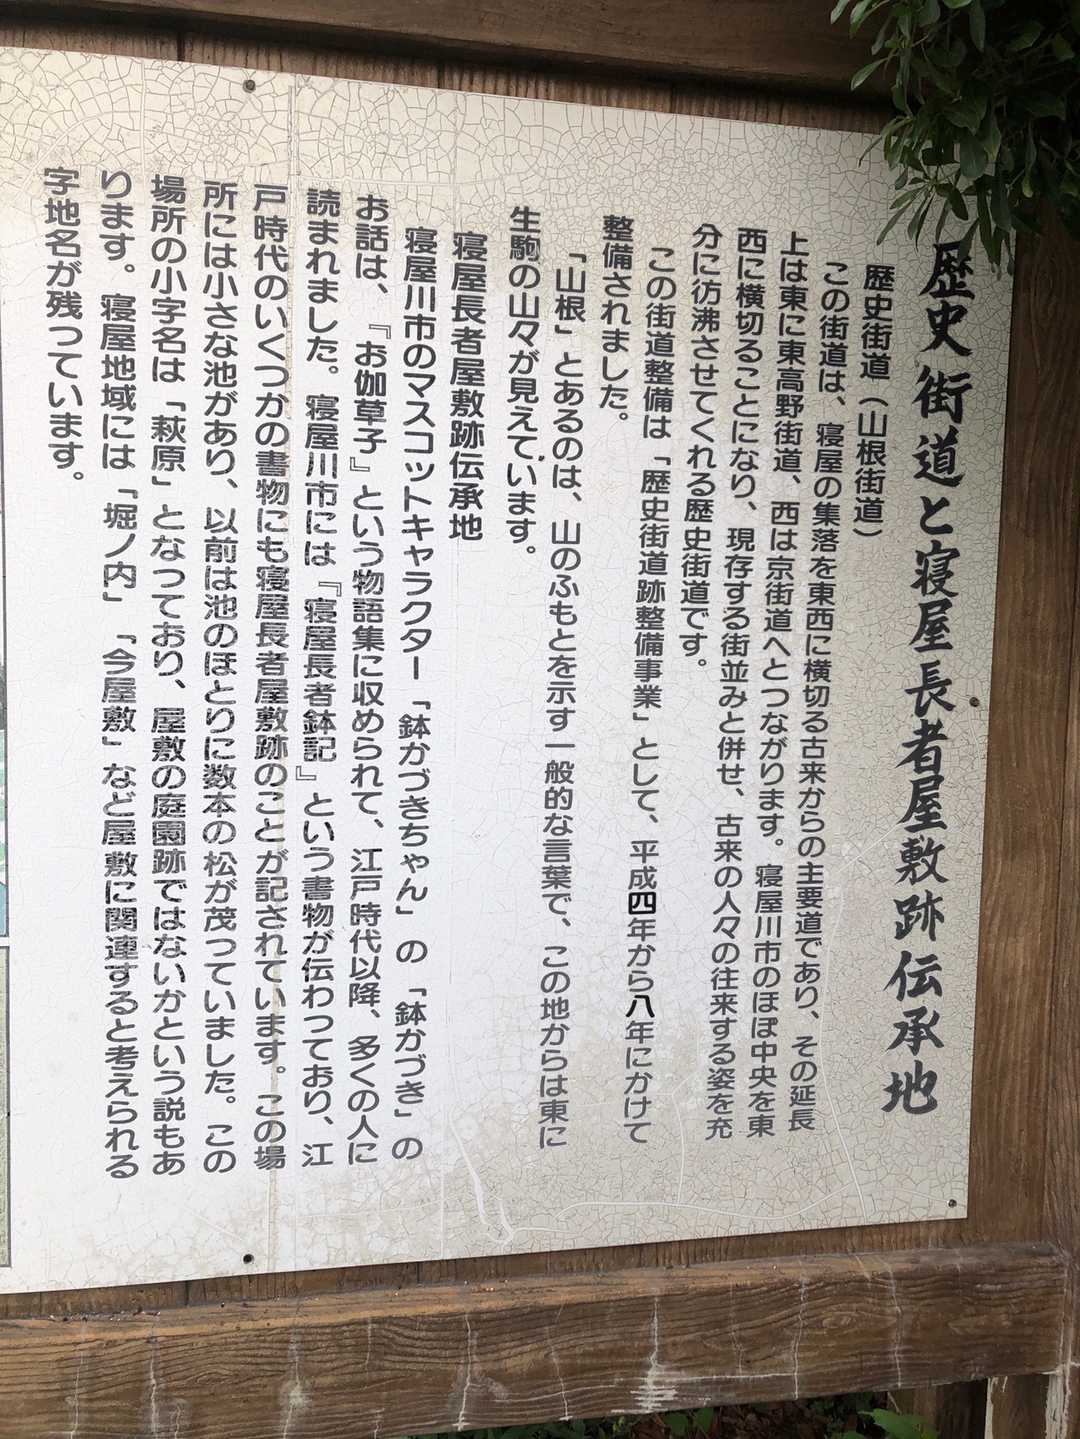 歴史街道と寝屋長者屋敷跡伝承地
歴史街道（山根街道）
この街道は、寝屋の集落を東西に横切る古来からの主要道であり、その延長
上は東に東高野街道、西は京街道へとつながります。寝屋川市のほぼ中央を東
西に横切ることになり、現存する街並みと併せ、古来の人々の往来する姿を充
分に彷沸させてくれる歴史街道です。
この街道整備は「歴史街道跡整備事業」として、平成四年から八年にかけて
整備されました。
「山根」とあるのは、山のふもとを示す一般的な言葉で、この地からは東に
生駒の山々が見えています。
寝屋長者屋敷跡伝承地
寝屋川市のマスコットキャラクター「鉢かづきちゃん」の「鉢かづき」の
お話は、『お伽草子』という物語集に収められて、江戸時代以降、多くの人に
読まれました。寝屋川市には『寝屋長者鉢記』という書物が伝わっており、江
戸時代のいくつかの書物にも寝屋長者屋敷跡のことが記されています。この場
所には小さな池があり、以前は池のほとりに数本の松が茂っていました。この
場所の小字名は「萩原」となっており、屋敷の庭園跡ではないかという説もあ
ります。寝屋地域には「堀ノ内」「今屋敷」など屋敷に関連すると考えられる
字地名が残っています。